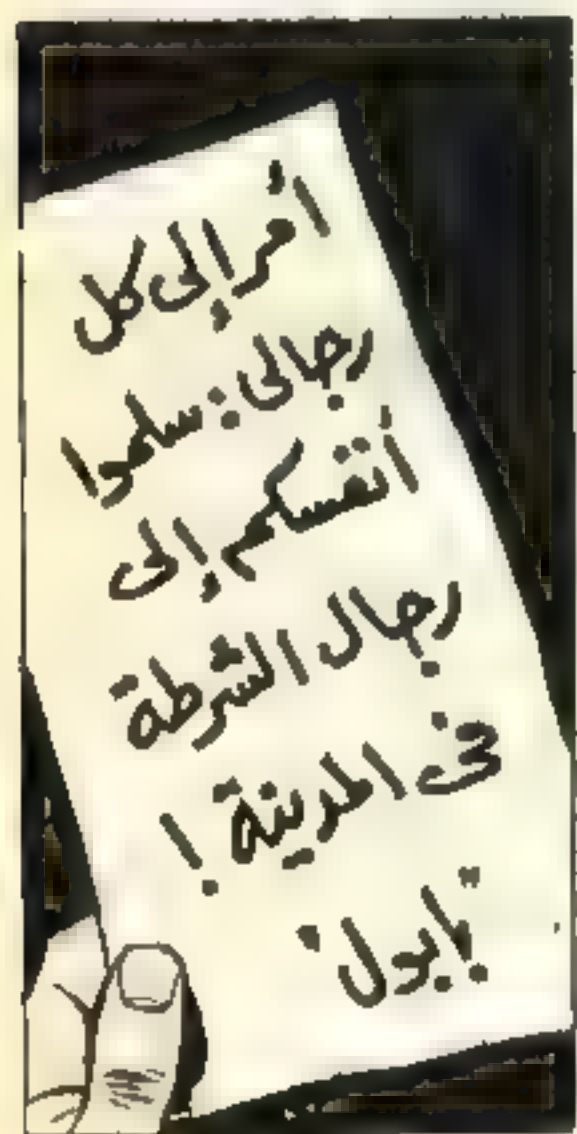 أمر إلى كل
رجالى : سلموا
أنفسكم إلى
رجال الشرطة
فى المدينة !
"بابول"